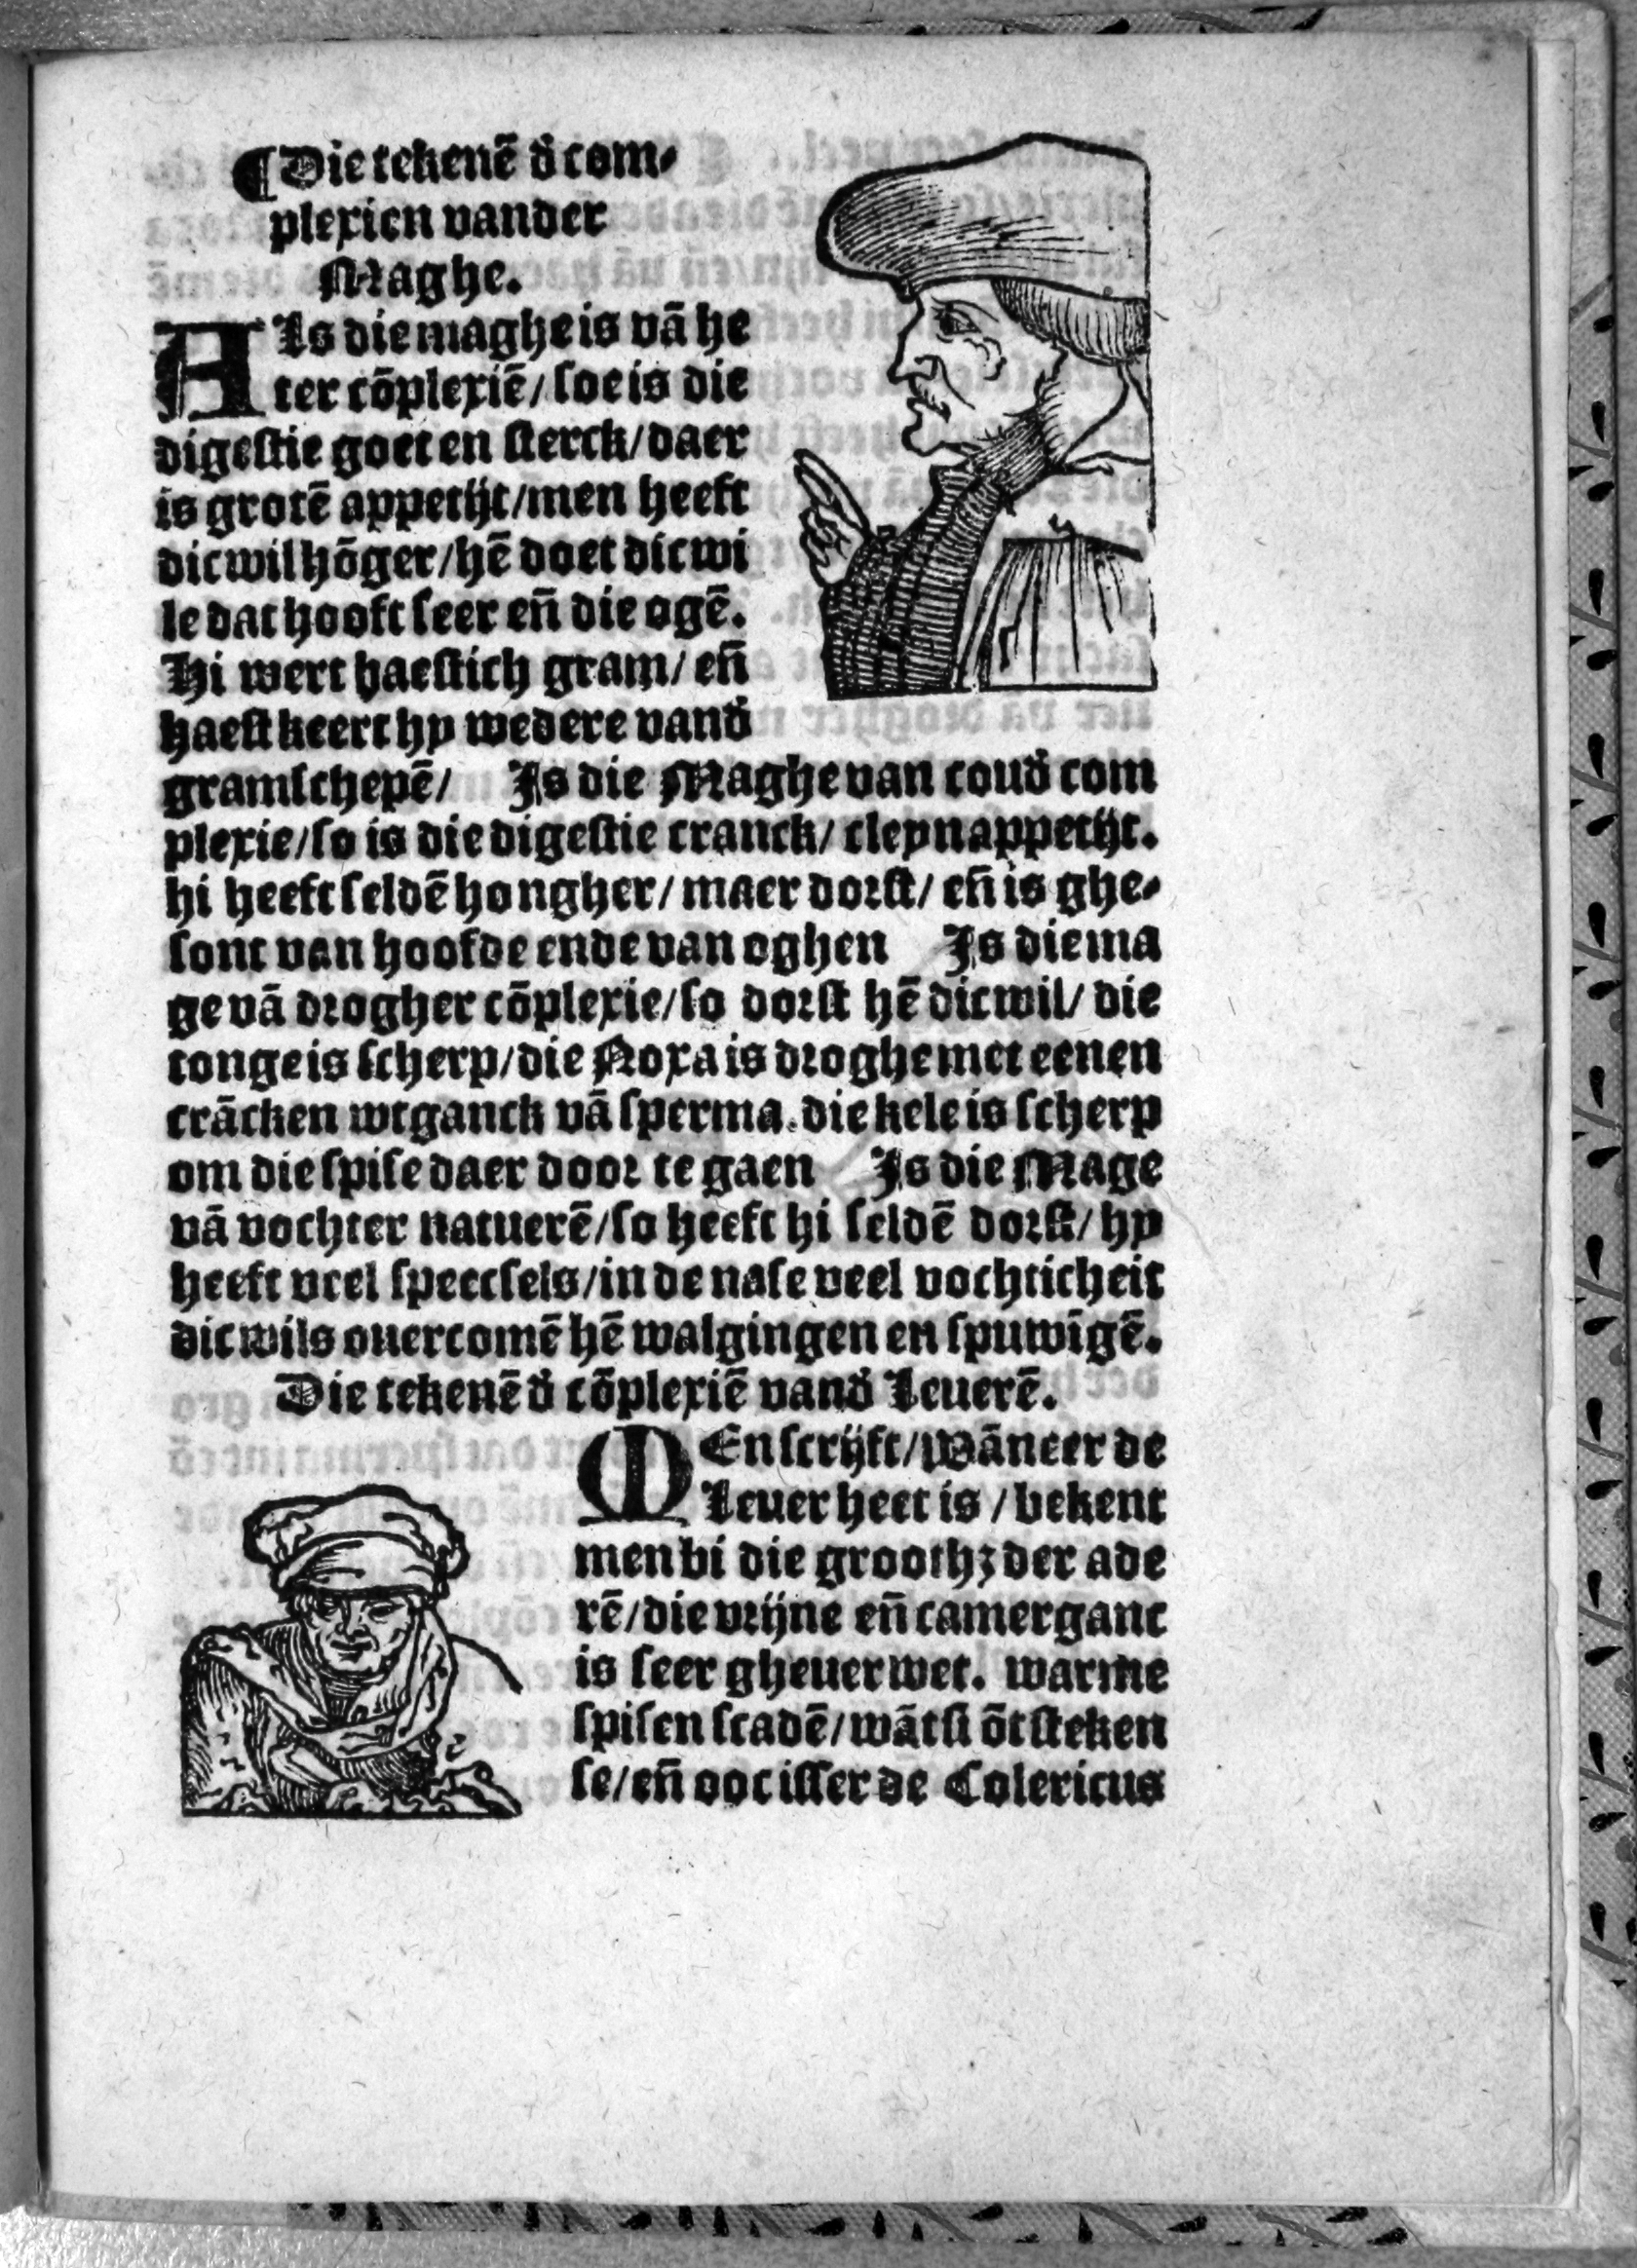 ¶Die tekenē đ com-
plexien vander
Maghe.
Als die maghe is vā he
ter cōplexiē/ soe is die
digestie goet en sterck/ daer
is grotē appetijt/men heeft
dicwil hōger/hē doet dicwi
le dat hooft seer eñ die ogē.
Hi wert haestich gram/ eñ
haest keert hy wedere vand̄
gramschepē/ Is die Maghe van coud̄ com
plexie/so is die digestie cranck/ cleyn appetijt.
hi heeft seldē hongher/ maer dorst/ eñ is ghe-
sont van hoofde ende van oghen Is die ma
ge vā drogher cōplexie/so dorst hē dicwil/ die
tonge is scherp/die Noxa is droghe met eenen
crācken wtganck vā sperma. die kele is scherp
om die spise daer door te gaen Is die Mage
vā vochter natuerē/so heeft hi seldē dorst/ hy
heeft veel speecsels/in de nase veel vochticheit
dicwils ouercomē hē walgingen en spuwīgē.
Die tekenē đ cōplexiē vand̄ Leuerē.
MEn scrijft/Wāneer de
Leuer heet is / bekent
men bi die grooth₃ der ade
rē/die vrijne eñ camerganc
is seer gheuerwet. warme
spisen scadē/wāt si ōtsteken
se/eñ ooc isser de Colericus